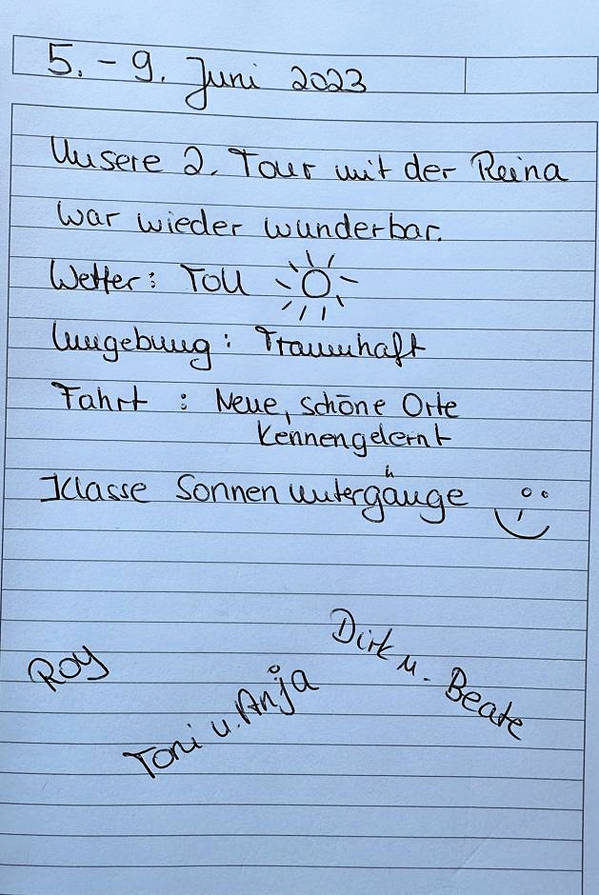 5. - 9. Juni 2023
Unsere 2. Tour mit der Reina
war wieder wunderbar.
Wetter: Toll
Umgebung: Traumhaft
Fahrt : Neue, schöne Orte
kennengelernt
Klasse Sonnenuntergänge
Roy
Toni u. Anja
Dirk u. Beate